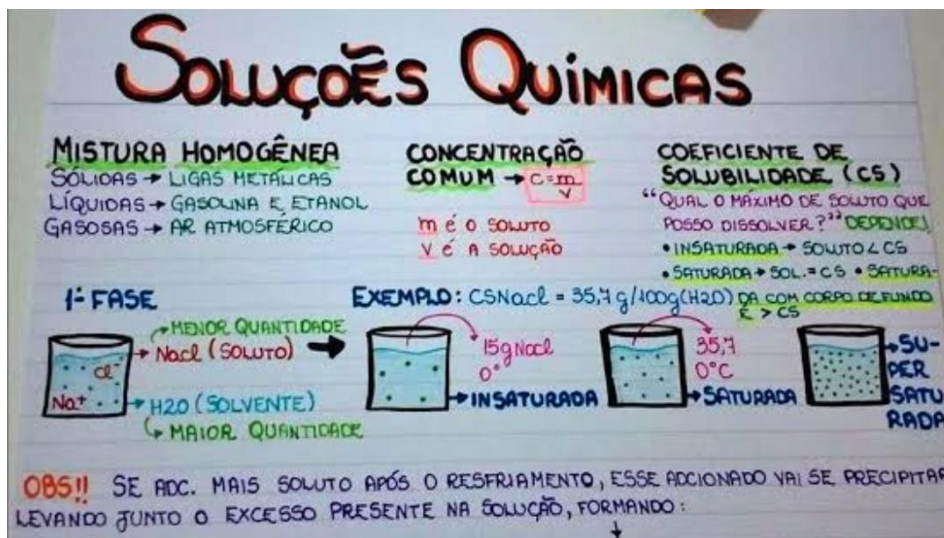 SOLUÇÕES QUÍMICAS
MISTURA HOMOGÊNEA
SÓLIDAS → LIGAS METÁLICAS
LÍQUIDAS → GASOLINA E ETANOL
GASOSAS → AR ATMOSFÉRICO
CONCENTRAÇÃO
COMUM → C=m/V
m é O SOLUTO
V é A SOLUÇÃO
COEFICIENTE DE
SOLUBILIDADE (CS)
"QUAL O MÁXIMO DE SOLUTO QUE
POSSO DISSOLVER?" DEPENDE!
• INSATURADA → SOLUTO < CS
• SATURADA → SOL. = CS • SATURA-
DA COM CORPO DE FUNDO
É > CS
1ª FASE
EXEMPLO: CSNacl = 35,7 g/100g(H2O)
→ MENOR QUANTIDADE
→ Nacl (SOLUTO) →
Cl⁻
Na⁺
→ H2O (SOLVENTE)
↳ MAIOR QUANTIDADE
15g Nacl
0°
→ INSATURADA
35,7
0°C
→ SATURADA
→ SU-
PER
SATU
RADA
OBS!! SE ADC. MAIS SOLUTO APÓS O RESFRIAMENTO, ESSE ADCIONADO VAI SE PRECIPITAR
LEVANDO JUNTO O EXCESSO PRESENTE NA SOLUÇÃO, FORMANDO: